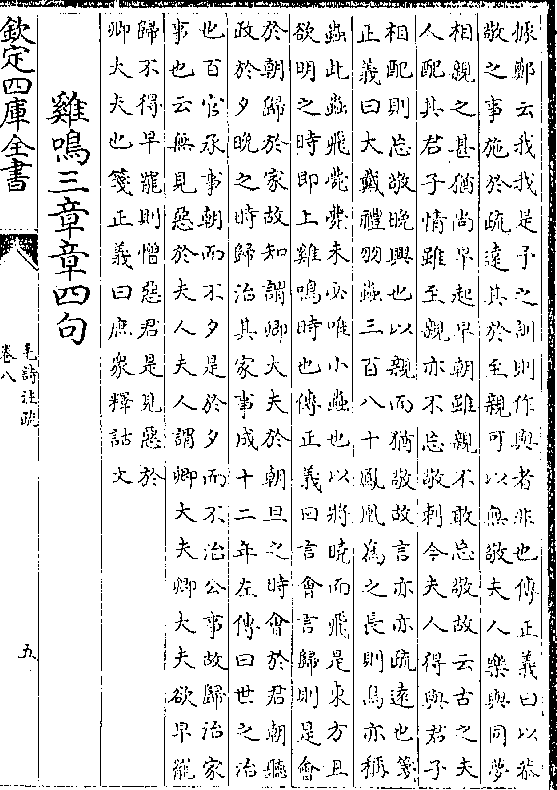 據鄭云我我是予之訓則作與者非也傳正義曰以恭
敬之事施於疏遠其於至親可以無敬夫人樂與同夢
相親之甚猶尚早起早朝雖親不敢忘敬故云古之夫
人配其君子情雖至親亦不忘敬刺今夫人得與君子
相配則忘敬晚興也以親而猶敬故言亦亦疏遠也箋
正義曰大戴禮羽蟲三百八十鳳凰為之長則鳥亦稱
蟲此蟲飛薨薨未必唯小蟲也以將曉而飛是東方且
欲明之時即上雞鳴時也傳正義曰言會言歸則是會
於朝歸於家故知謂卿大夫於朝旦之時會於君朝聽
政於夕晚之時歸治其家事成十二年左傳曰世之治
也百官承事朝而不夕是於夕而不治公事故歸治家
事也云無見惡於夫人夫人謂卿大夫卿大夫欲早罷
歸不得早罷則憎惡君是見惡於
卿大夫也箋正義曰庶眾釋詁文
雞鳴三章章四句
欽定四庫全書
毛詩注疏
卷八
五